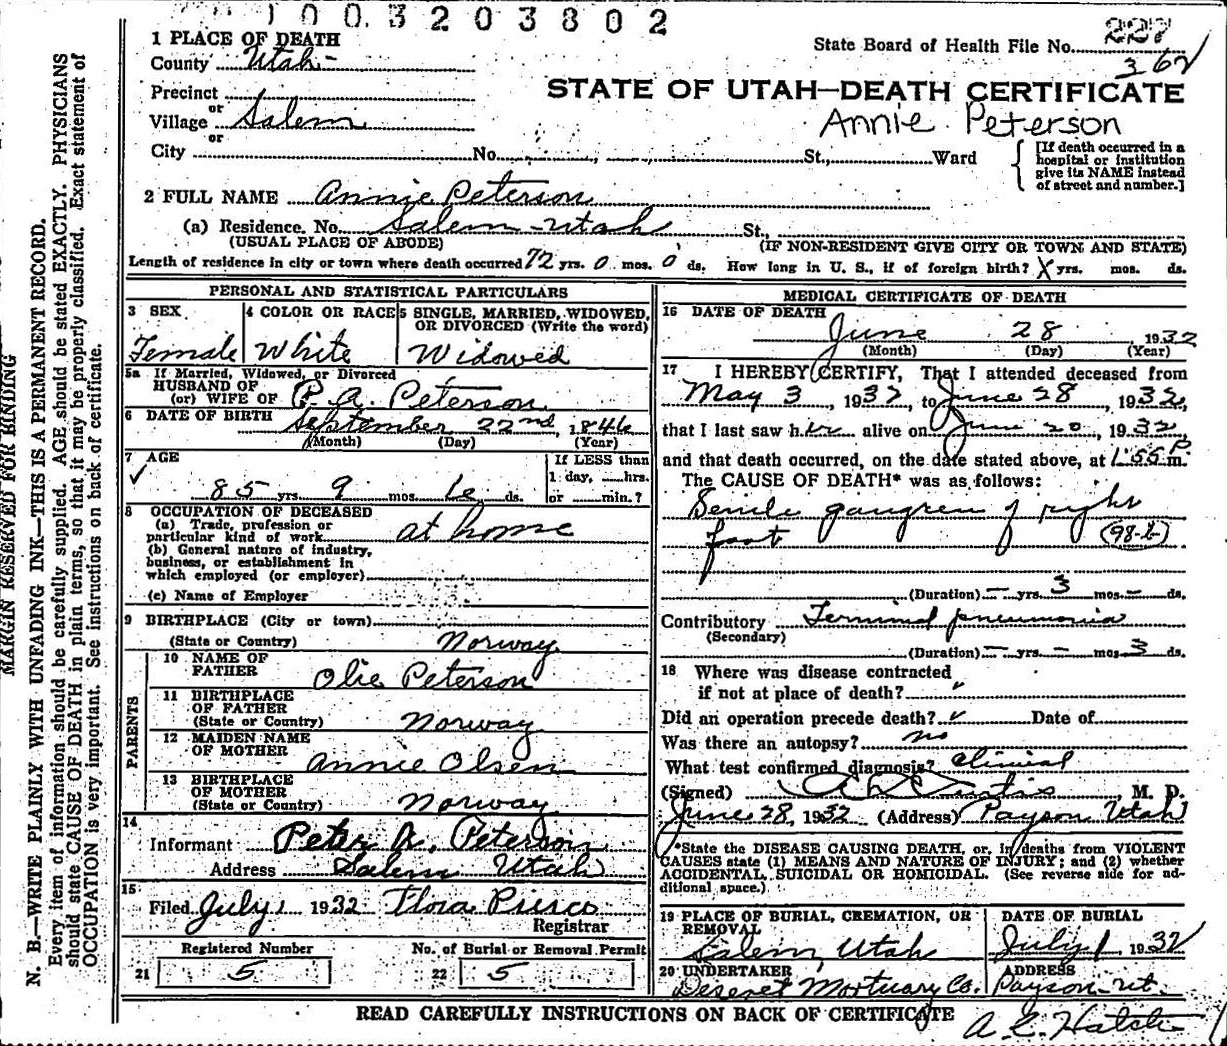 1003203802
1 PLACE OF DEATH
County Utah
State Board of Health File No. 227
362
Precinct
or
Village Salem
or
STATE OF UTAH—DEATH CERTIFICATE
Annie Peterson
City No. St., Ward
[If death occurred in a hospital or institution give its NAME instead of street and number.]
2 FULL NAME Annie Peterson
(a) Residence. No. Salem - Utah St.,
(USUAL PLACE OF ABODE) (IF NON-RESIDENT GIVE CITY OR TOWN AND STATE)
Length of residence in city or town where death occurred 72 yrs. 0 mos. 0 ds. How long in U. S., if of foreign birth? X yrs. mos. ds.
PERSONAL AND STATISTICAL PARTICULARS
3 SEX 4 COLOR OR RACE 5 SINGLE, MARRIED, WIDOWED, OR DIVORCED (Write the word)
Female White Widowed
5a If Married, Widowed, or Divorced
HUSBAND OF
(or) WIFE OF P. A. Peterson
6 DATE OF BIRTH September 22nd, 1846
(Month) (Day) (Year)
7 AGE If LESS than
1 day, hrs.
85 yrs. 9 mos. 6 ds. or min.?
8 OCCUPATION OF DECEASED
(a) Trade, profession or
particular kind of work at home
(b) General nature of industry,
business, or establishment in
which employed (or employer)
(c) Name of Employer
9 BIRTHPLACE (City or town)
(State or Country) Norway
PARENTS
10 NAME OF
FATHER Olie Peterson
11 BIRTHPLACE
OF FATHER
(State or Country) Norway
12 MAIDEN NAME
OF MOTHER Annie Olsen
13 BIRTHPLACE
OF MOTHER
(State or Country) Norway
14
Informant Peter A. Peterson
Address Salem Utah
15
Filed July 1 1932 Flora Pierce
Registrar
Registered Number No. of Burial or Removal Permit
21 5 22 5
MEDICAL CERTIFICATE OF DEATH
16 DATE OF DEATH
June 28 1932
(Month) (Day) (Year)
17 I HEREBY CERTIFY, That I attended deceased from
May 3, 1932, to June 28, 1932,
that I last saw her alive on June 20, 1932
and that death occurred, on the date stated above, at 1:55 P m.
The CAUSE OF DEATH* was as follows:
Senile gangren of right
foot (98-b)
(Duration) — yrs. 3 mos. — ds.
Contributory Terminal pneumonia
(Secondary)
(Duration) — yrs. — mos. 3 ds.
18 Where was disease contracted
if not at place of death?
Did an operation precede death? Date of
Was there an autopsy? no
What test confirmed diagnosis? Clinical
(Signed) Curtis, M. D.
June 28, 1932 (Address) Payson Utah
*State the DISEASE CAUSING DEATH, or, in deaths from VIOLENT
CAUSES state (1) MEANS AND NATURE OF INJURY; and (2) whether
ACCIDENTAL, SUICIDAL OR HOMICIDAL. (See reverse side for ad-
ditional space.)
19 PLACE OF BURIAL, CREMATION, OR REMOVAL DATE OF BURIAL
Salem, Utah July 1 1932
20 UNDERTAKER ADDRESS
Deseret Mortuary Co. Payson-Ut.
READ CAREFULLY INSTRUCTIONS ON BACK OF CERTIFICATE
MARGIN RESERVED FOR BINDING
N. B.—WRITE PLAINLY WITH UNFADING INK—THIS IS A PERMANENT RECORD.
Every item of information should be carefully supplied. AGE should be stated EXACTLY. PHYSICIANS
should state CAUSE OF DEATH in plain terms, so that it may be properly classified. Exact statement of
OCCUPATION is very important. See instructions on back of certificate.